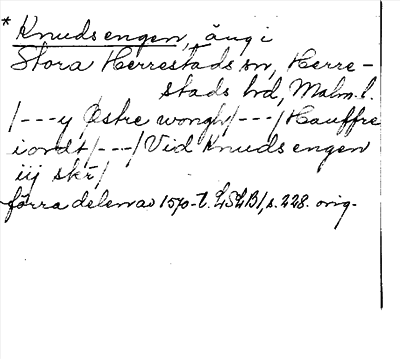 * Knudsengen, äng i
Stora Herrestads sn, Herre-
stads hd, Malm. l.
/---y Østre wongh/---/Hauffre
iordt/---/Vid Knuds engen
iij skr/
förra delen av 1570-t. LSLB1, s. 228. orig.